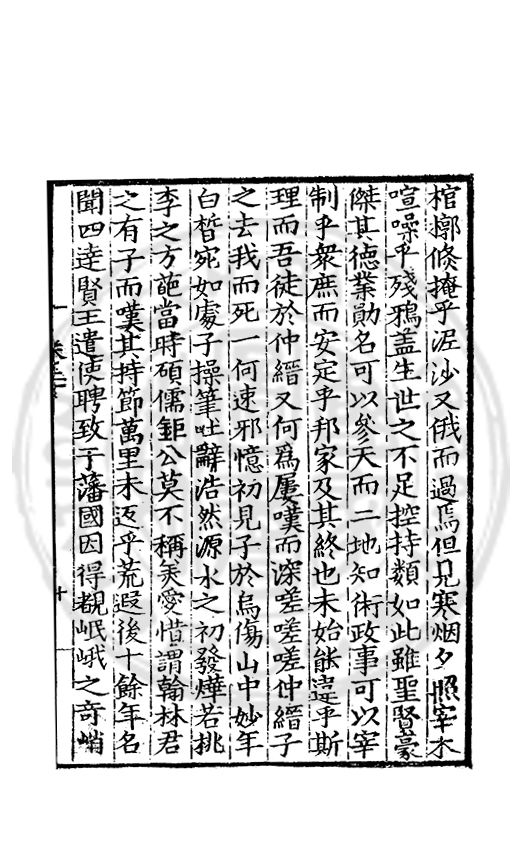 棺槨倏掩乎泥沙又俄而過焉但見寒烟夕照宰木
喧噪乎殘鴉盖生世之不足控持類如此雖聖賢豪
傑其徳業勛名可以參天而二地知術政事可以宰
制乎衆庶而安定乎邦家及其終也未始能違乎斯
理而吾徒於仲縉又何爲屢嘆而深嗟嗟嗟仲縉子
之去我而死一何速邪憶初見子於烏傷山中妙年
白皙宛如處子操筆吐辭浩然源水之初發燁若桃
李之方葩當時碩儒鉅公莫不稱羙愛惜謂翰林君
之有子而嘆其持節萬里未返乎荒遐後十餘年名
聞四逹賢王遣使聘致于藩國因得覩岷峨之奇峭
卷三
十